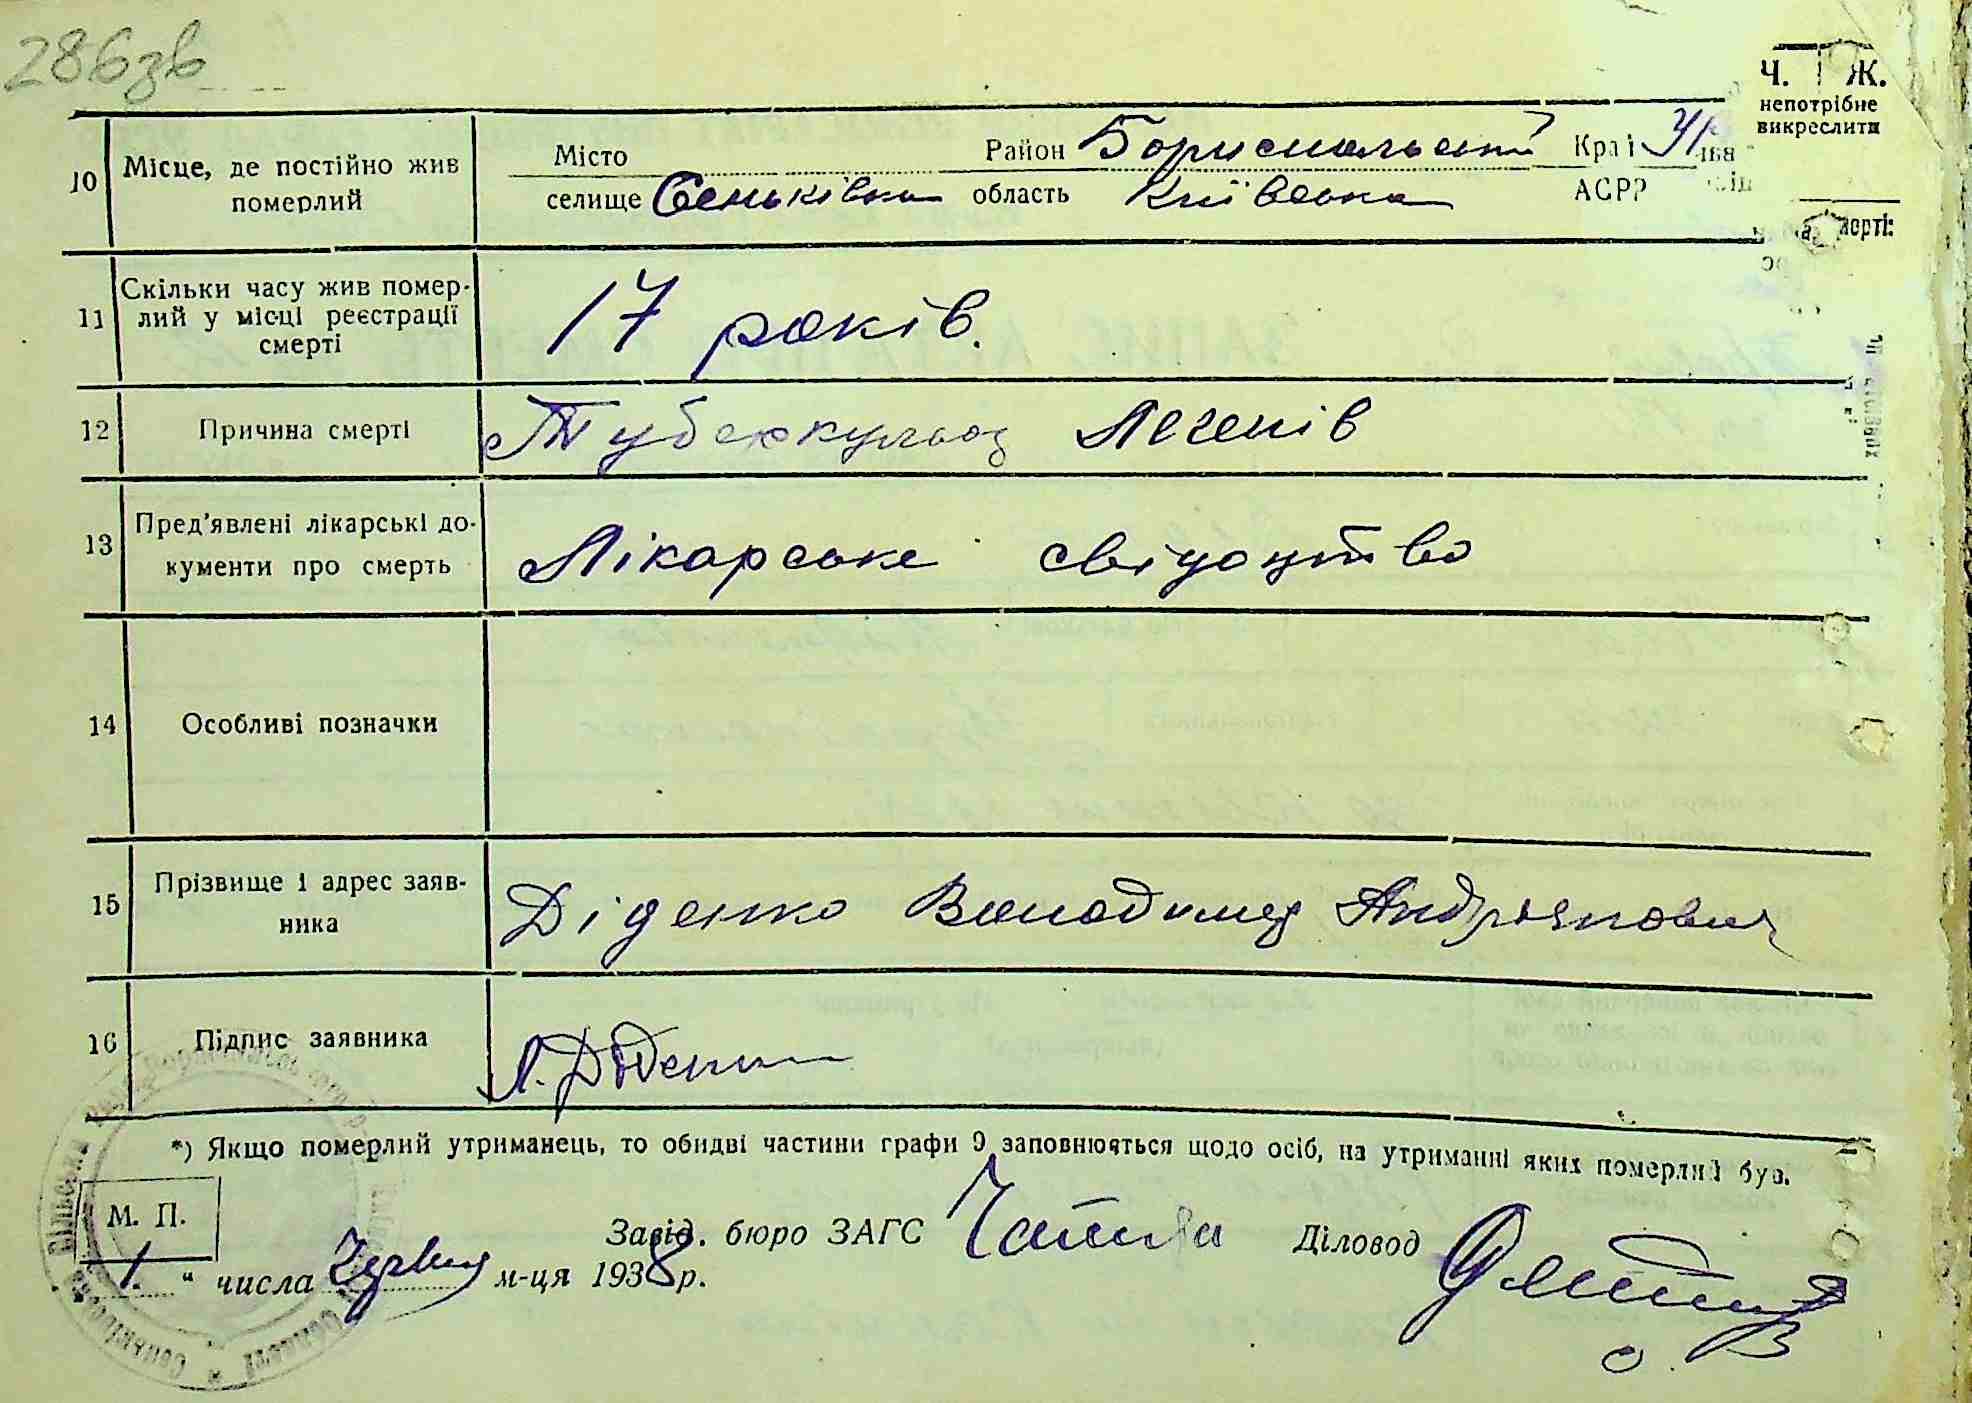 286зв
Ч. Ж.
непотрібне
викреслити
10 Місце, де постійно жив померлий
Місто Район Бориспольский Край
селище Сеньківка область Київська АСРР
11 Скільки часу жив помер-
лий у місці реєстрації
смерті
17 років.
12 Причина смерті
Туберкульоз Легенів
13 Пред'явлені лікарські до-
кументи про смерть
Лікарське свідоцтво
14 Особливі позначки
15 Прізвище і адрес заяв-
ника
Діденко Володимер Андріянович
16 Підпис заявника
*) Якщо померлий утриманець, то обидві частини графи 9 заповнюються щодо осіб, на утриманні яких померлий був.
М. П.
Завід. бюро ЗАГС Діловод
„ 1. “ числа Червня м-ця 1938 р.